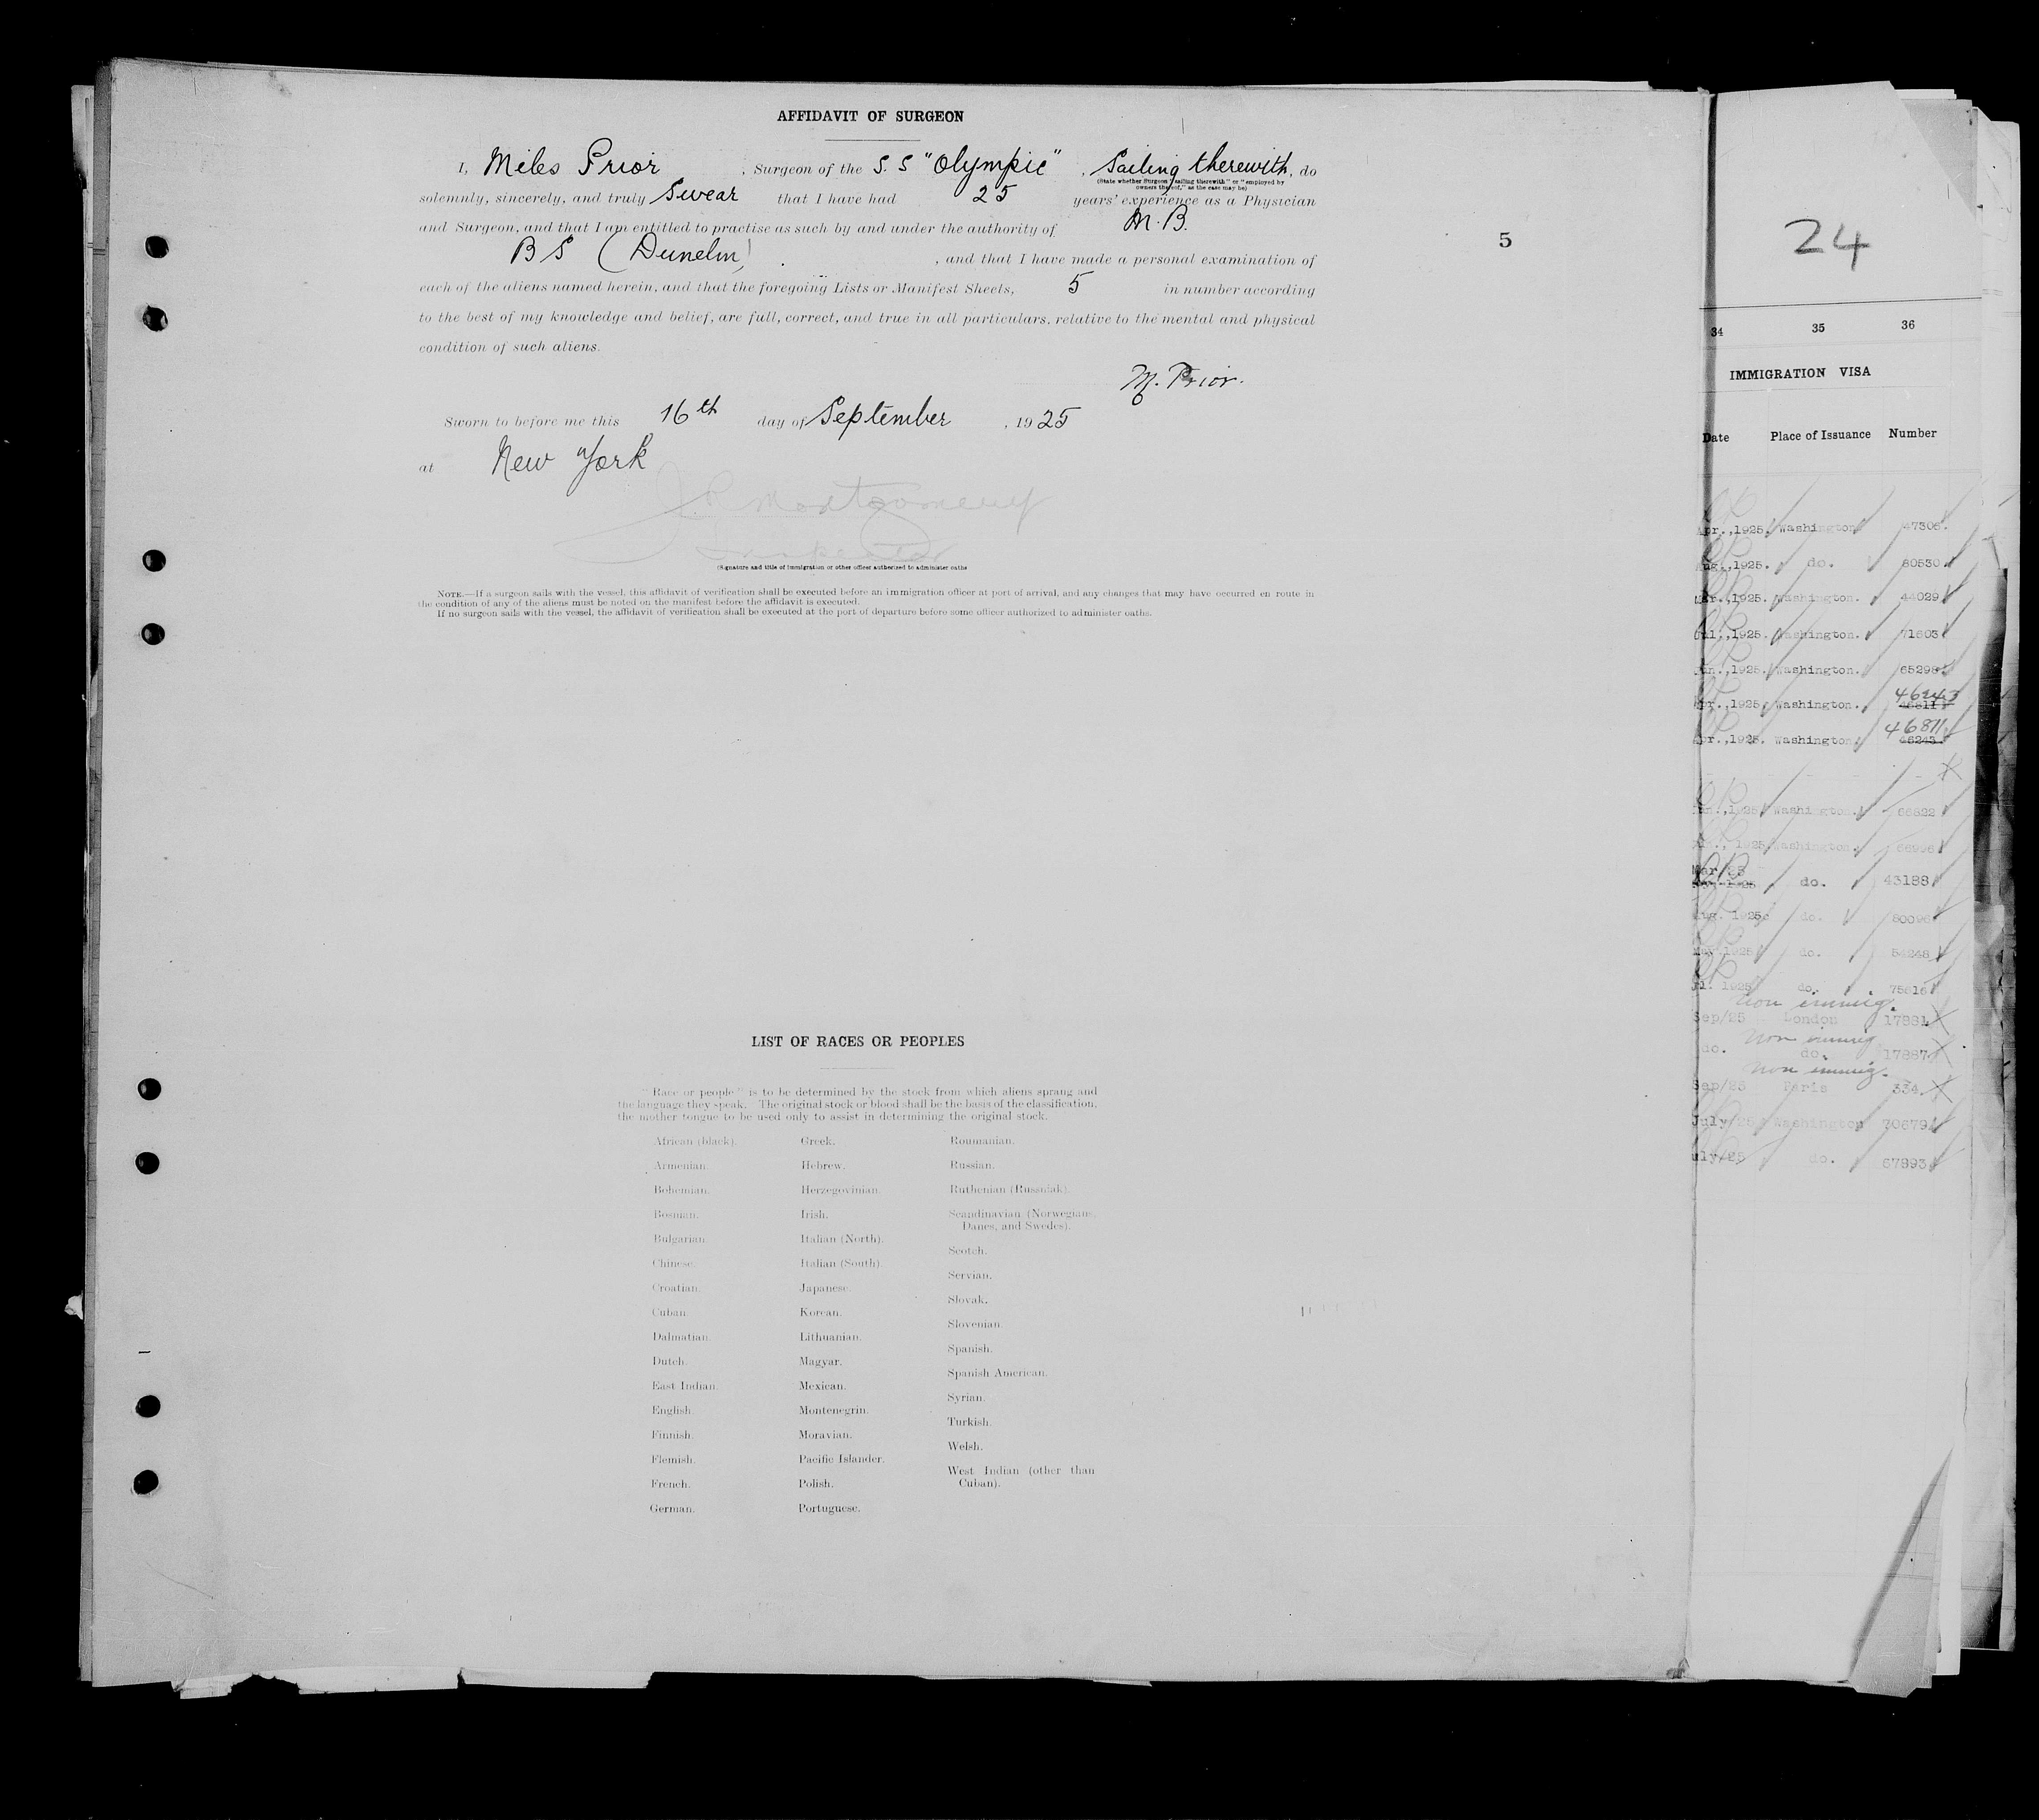 AFFIDAVIT OF SURGEON
I, Miles Prior, Surgeon of the S.S "Olympic", Sailing therewith, do
(State whether Surgeon "sailing therewith" or "employed by
owners thereof," as the case may be)
solemnly, sincerely, and truly Swear that I have had 25 years' experience as a Physician
and Surgeon, and that I am entitled to practise as such by and under the authority of M.B.
B S (Dunelm) , and that I have made a personal examination of
each of the aliens named herein, and that the foregoing Lists or Manifest Sheets, 5 in number according
to the best of my knowledge and belief, are full, correct, and true in all particulars, relative to the mental and physical
condition of such aliens.
M. Prior.
Sworn to before me this 16th day of September, 1925
at New York
Montgomery
Inspector
(Signature and title of immigration or other officer authorized to administer oaths
NOTE.—If a surgeon sails with the vessel, this affidavit of verification shall be executed before an immigration officer at port of arrival, and any changes that may have occurred en route in
the condition of any of the aliens must be noted on the manifest before the affidavit is executed.
If no surgeon sails with the vessel, the affidavit of verification shall be executed at the port of departure before some officer authorized to administer oaths.
5
LIST OF RACES OR PEOPLES
"Race or people" is to be determined by the stock from which aliens sprang and
the language they speak. The original stock or blood shall be the basis of the classification,
the mother tongue to be used only to assist in determining the original stock.
African (black).
Armenian.
Bohemian.
Bosnian.
Bulgarian.
Chinese.
Croatian.
Cuban.
Dalmatian.
Dutch.
East Indian.
English.
Finnish.
Flemish.
French.
German.
Greek.
Hebrew.
Herzegovinian.
Irish.
Italian (North).
Italian (South).
Japanese.
Korean.
Lithuanian.
Magyar.
Mexican.
Montenegrin.
Moravian.
Pacific Islander.
Polish.
Portuguese.
Roumanian.
Russian.
Ruthenian (Russniak).
Scandinavian (Norwegians,
Danes, and Swedes).
Scotch.
Servian.
Slovak.
Slovenian.
Spanish.
Spanish American.
Syrian.
Turkish.
Welsh.
West Indian (other than
Cuban).
24
34 35 36
IMMIGRATION VISA
Date Place of Issuance Number
Apr.,1925. Washington 47306.
Aug.,1925. do. 80530
Mar.,1925. Washington. 44029
Jul.,1925. Washington. 71603
Jun.,1925. Washington. 65298
46243
Apr.,1925. Washington. 46811
46811
Apr.,1925. Washington. 46243
Jun.,1925. Washington. 66822
1925. Washington.
Mar 25
1925 do. 43188
Aug. 1925. do.
1925 do. 54248
Jul. 1925 do. 75616
Non immig.
Sep/25 London 17881
Non immig
do. do. 17887
Non immig.
Sep/25 Paris 334.
July/25 Washington 70679
July/25 do. 67893